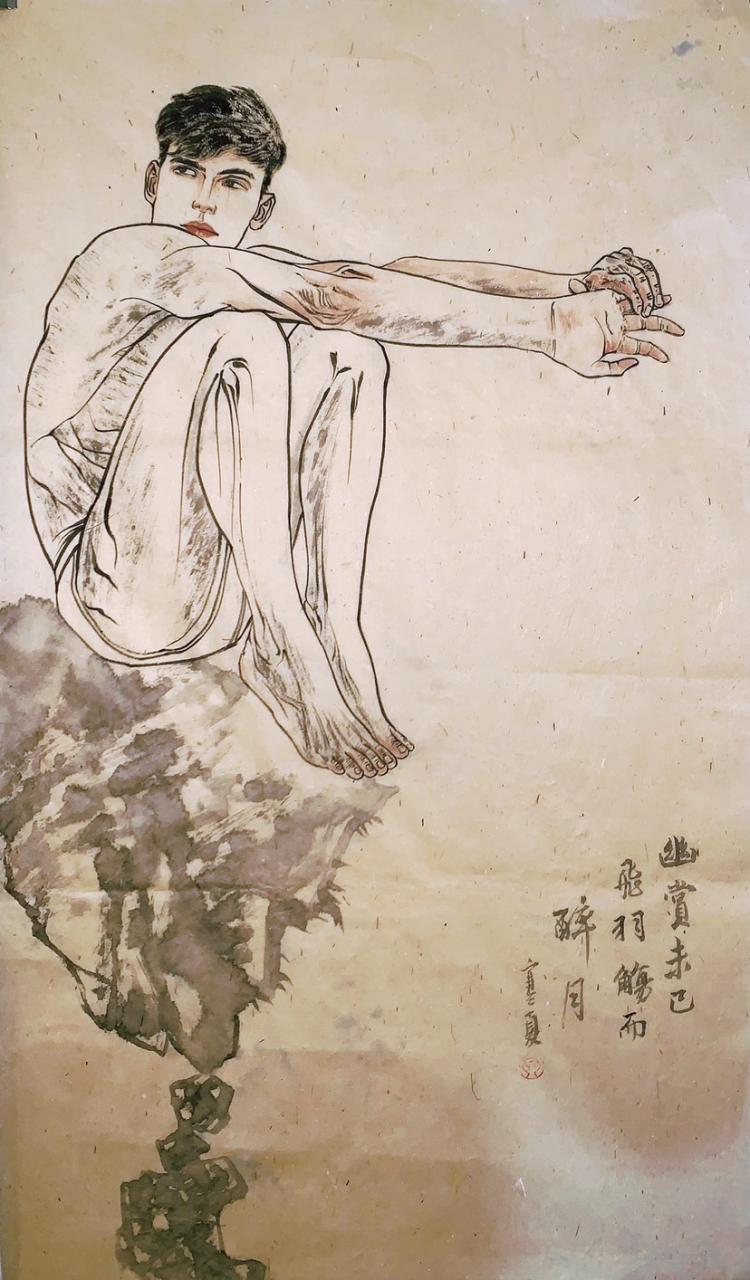 幽賞未已
飛羽觴而
醉月